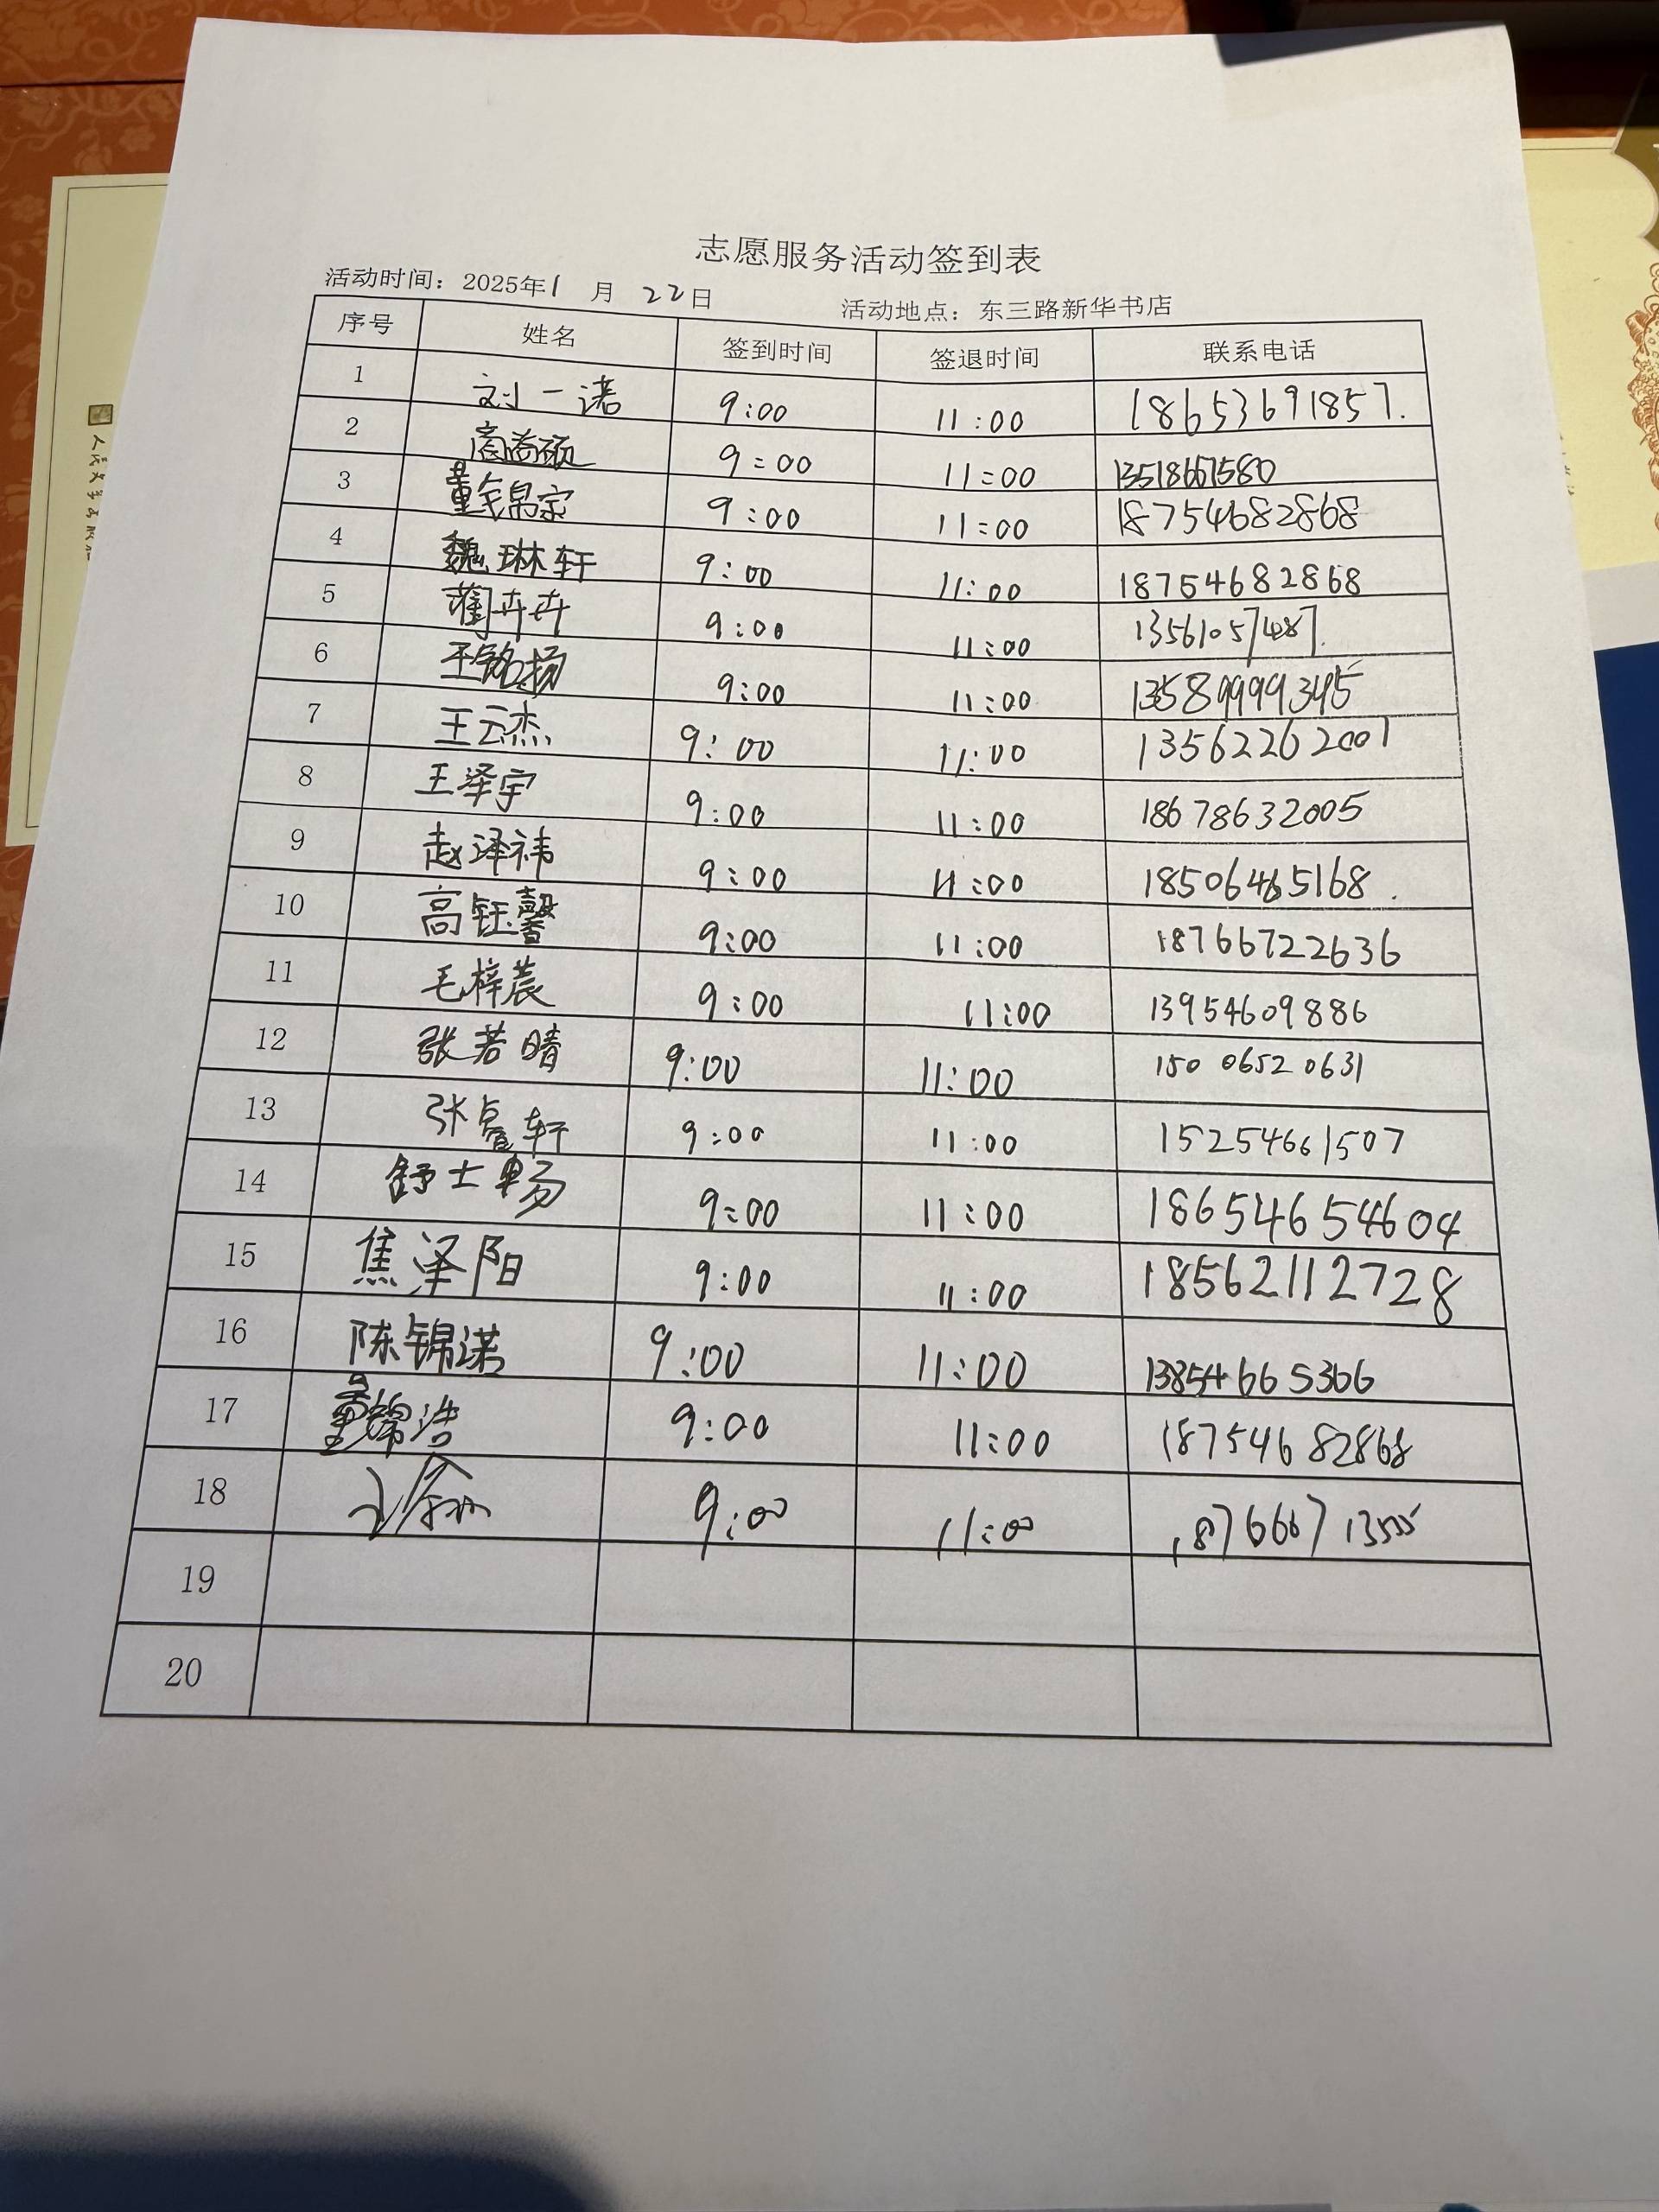 志愿服务活动签到表
活动时间：2025年1月22日 活动地点：东三路新华书店
序号 姓名 签到时间 签退时间 联系电话
1 刘一诺 9:00 11:00 18653691857.
2 9:00 11:00 13518661580
3 董锦宗 9:00 11:00 18754682868
4 魏琳轩 9:00 11:00 18754682868
5 蔺卉卉 9:00 11:00 13561057487.
6 王铭扬 9:00 11:00 13589999345
7 王云杰 9:00 11:00 13562262001
8 王泽宇 9:00 11:00 18678632005
9 赵泽祎 9:00 11:00 18506465168.
10 高钰馨 9:00 11:00 18766722636
11 毛梓晨 9:00 11:00 13954609886
12 张若晴 9:00 11:00 150 0652 0631
13 张睿轩 9:00 11:00 15254661507
14 舒士畅 9:00 11:00 18654654604
15 焦泽阳 9:00 11:00 18562112728
16 陈锦诺 9:00 11:00 13854665366
17 董锦浩 9:00 11:00 18754682868
18 9:00 11:00
19
20
人民文学出版社